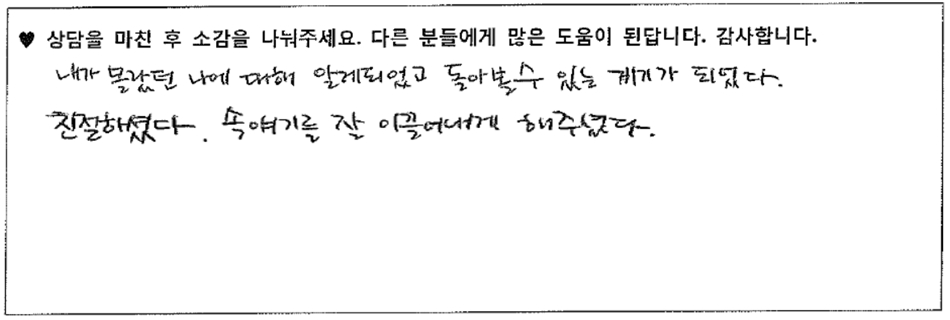 ♥ 상담을 마친 후 소감을 나눠주세요. 다른 분들에게 많은 도움이 된답니다. 감사합니다.
내가 몰랐던 나에 대해 알게되었고 돌아볼수 있는 계기가 되었다.
친절하셨다. 속얘기를 잘 이끌어내게 해주셨다.